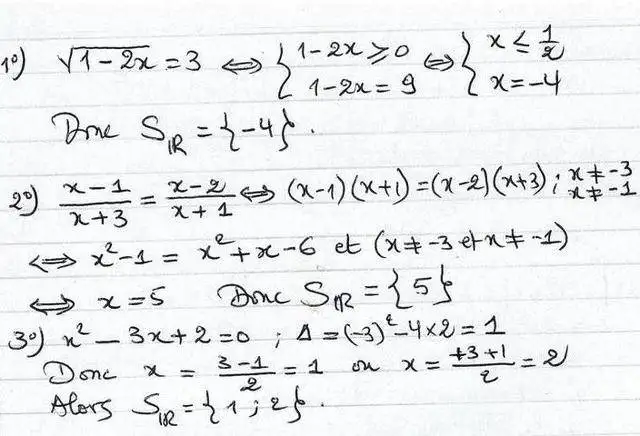 1°) √(1-2x) = 3 ⟺ { 1-2x ⩾ 0 ; 1-2x = 9 ⟺ { x ≤ 1/2 ; x = -4
Donc S_IR = {-4}.
2°) (x-1)/(x+3) = (x-2)/(x+1) ⟺ (x-1)(x+1) = (x-2)(x+3) ; x ≠ -3 x ≠ -1
⟺ x² -1 = x² + x - 6 et (x ≠ -3 et x ≠ -1)
⟺ x = 5 Donc S_IR = {5}
3°) x² - 3x + 2 = 0 ; Δ = (-3)² - 4×2 = 1
Donc x = (3-1)/2 = 1 ou x = (+3+1)/2 = 2
Alors S_IR = {1 ; 2}.